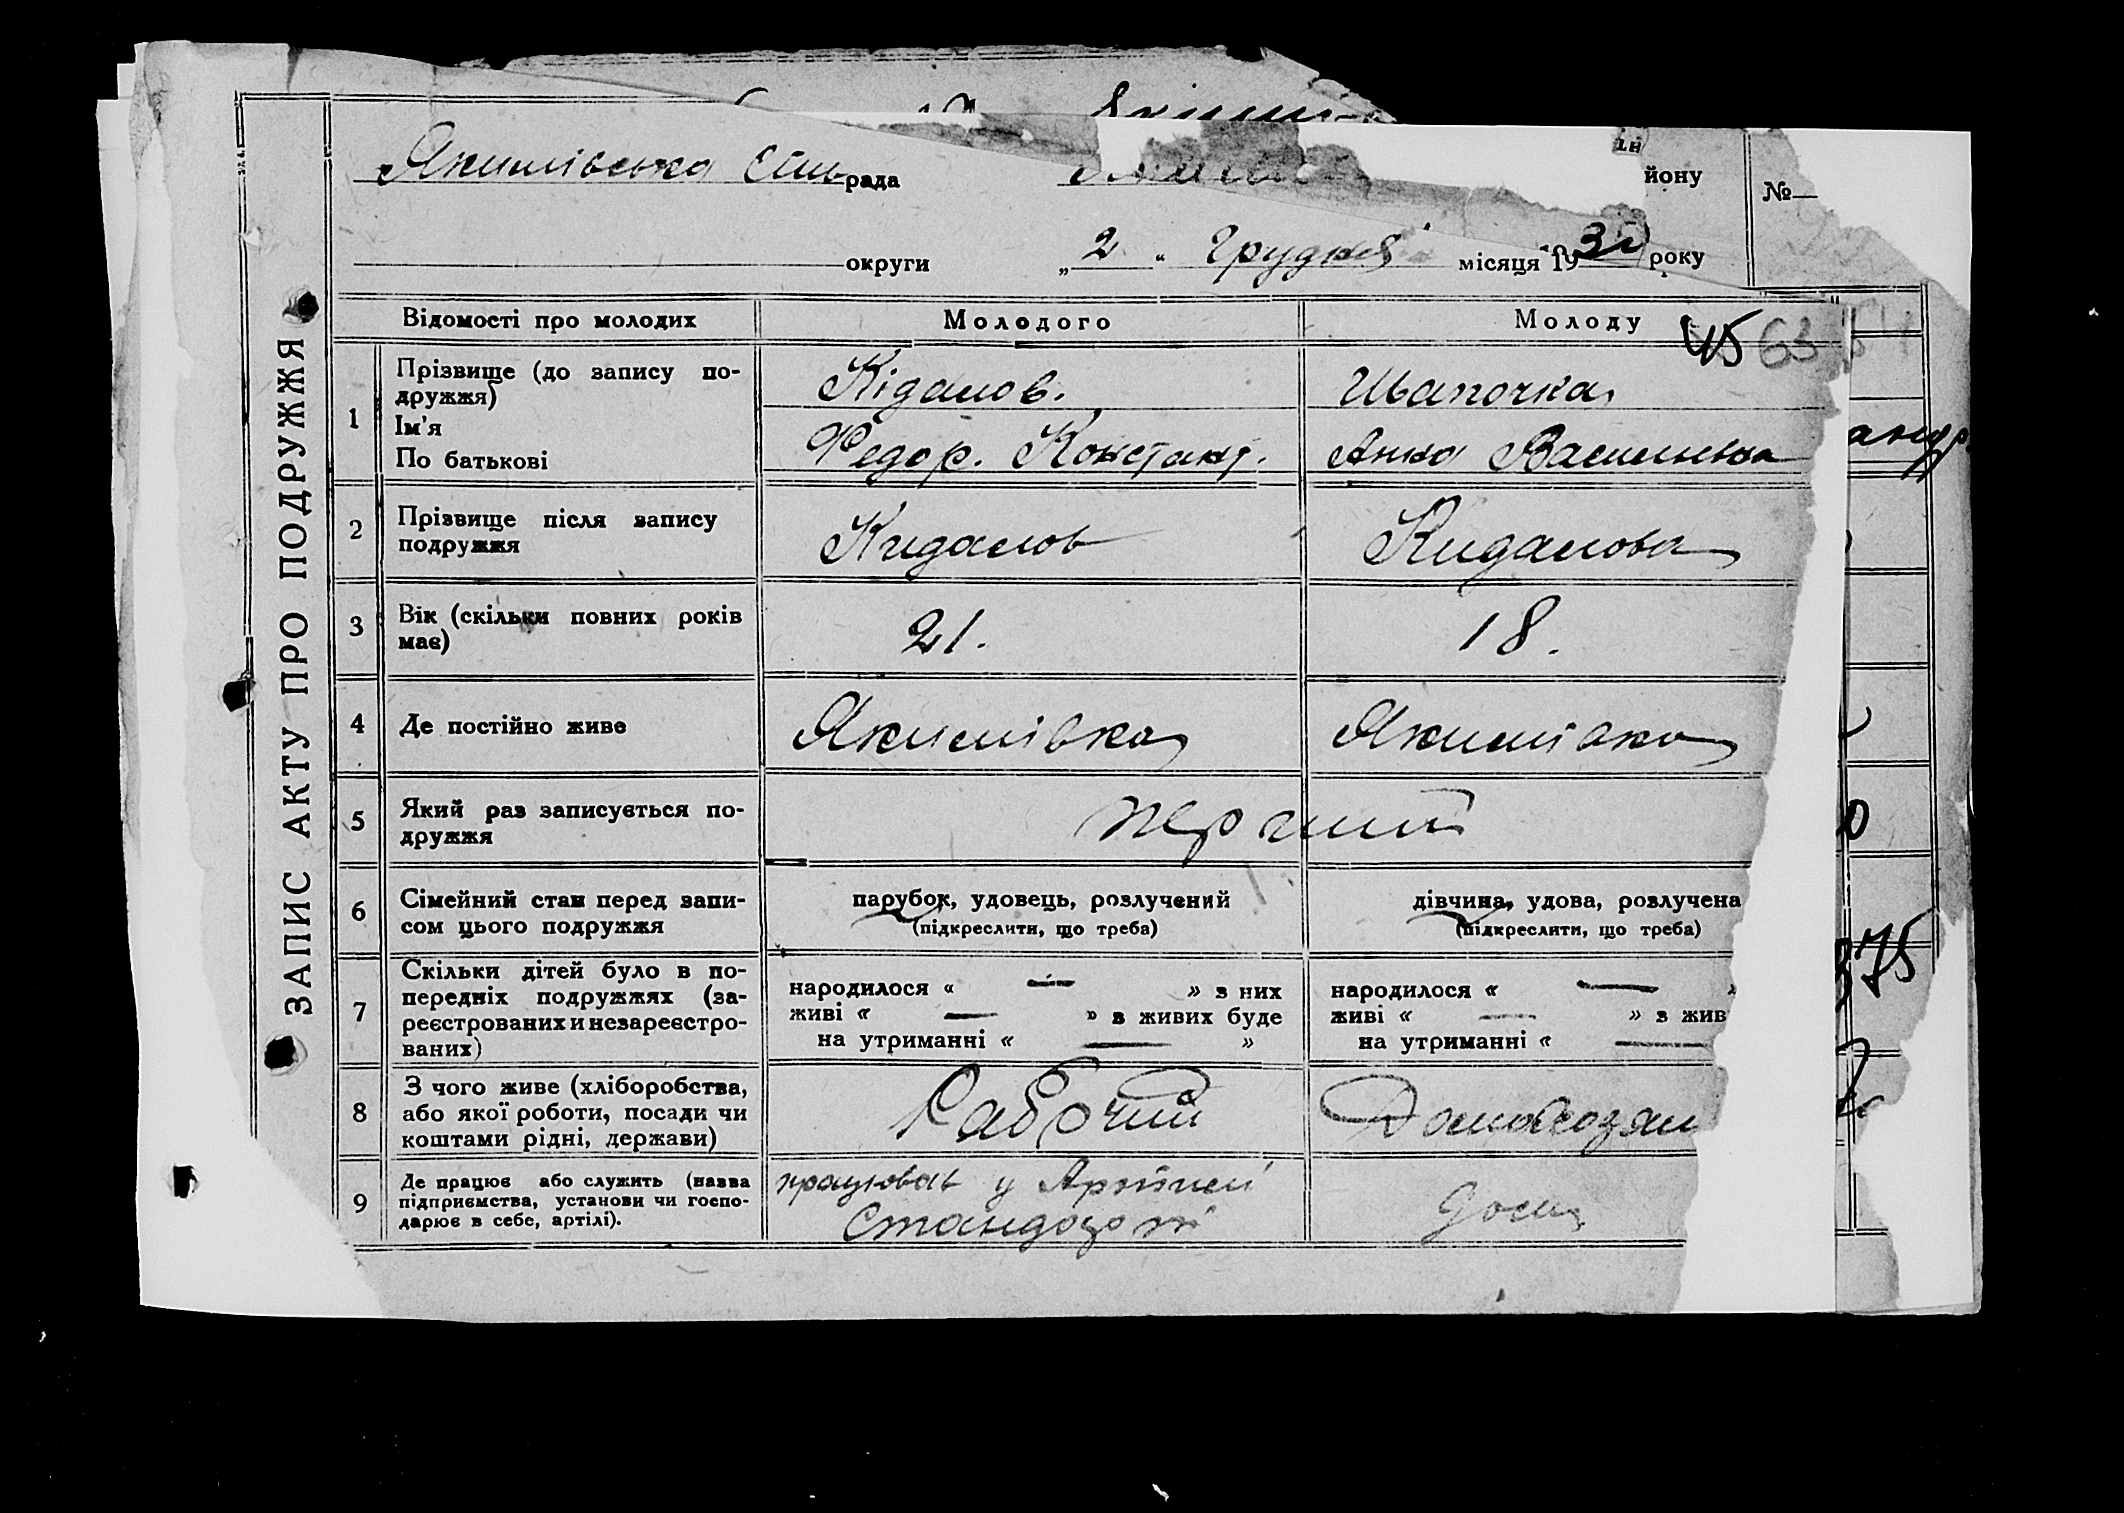 Якимівська Сіль рада йону №
округи „ 2 “ Грудня місяця 193 року
ЗАПИС АКТУ ПРО ПОДРУЖЖЯ
Відомості про молодих Молодого Молоду 45 63
1 Прізвище (до запису по-
дружжя) Кідалов. Шапочка
Ім'я
По батькові Федор. Констант. Анна Васильевна
2 Прізвище після запису
подружжя Кидалов Кидалова
3 Вік (скільки повних років
має) 21. 18.
4 Де постійно живе Якимівка Якимівка
5 Який раз записується по-
дружжя перший
6 Сімейний стан перед запи-
сом цього подружжя
парубок, удовець, розлучений дівчина, удова, розлучена
(підкреслити, що треба) (підкреслити, що треба)
7 Скільки дітей було в по-
передніх подружжях (за-
реєстрованих и незареєстро-
ваних)
народилося « — » з них
живі « — » з живих буде
на утриманні « — »
народилося « —
живі « — » з жив
на утриманні « —
8 З чого живе (хліборобства,
або якої роботи, посади чи
коштами рідні, держави)
Рабочий Домохозяи
9 Де працює або служить (назва
підприємства, установи чи госпо-
дарює в себе, артілі).
працював у Артілі
дома
андр
375